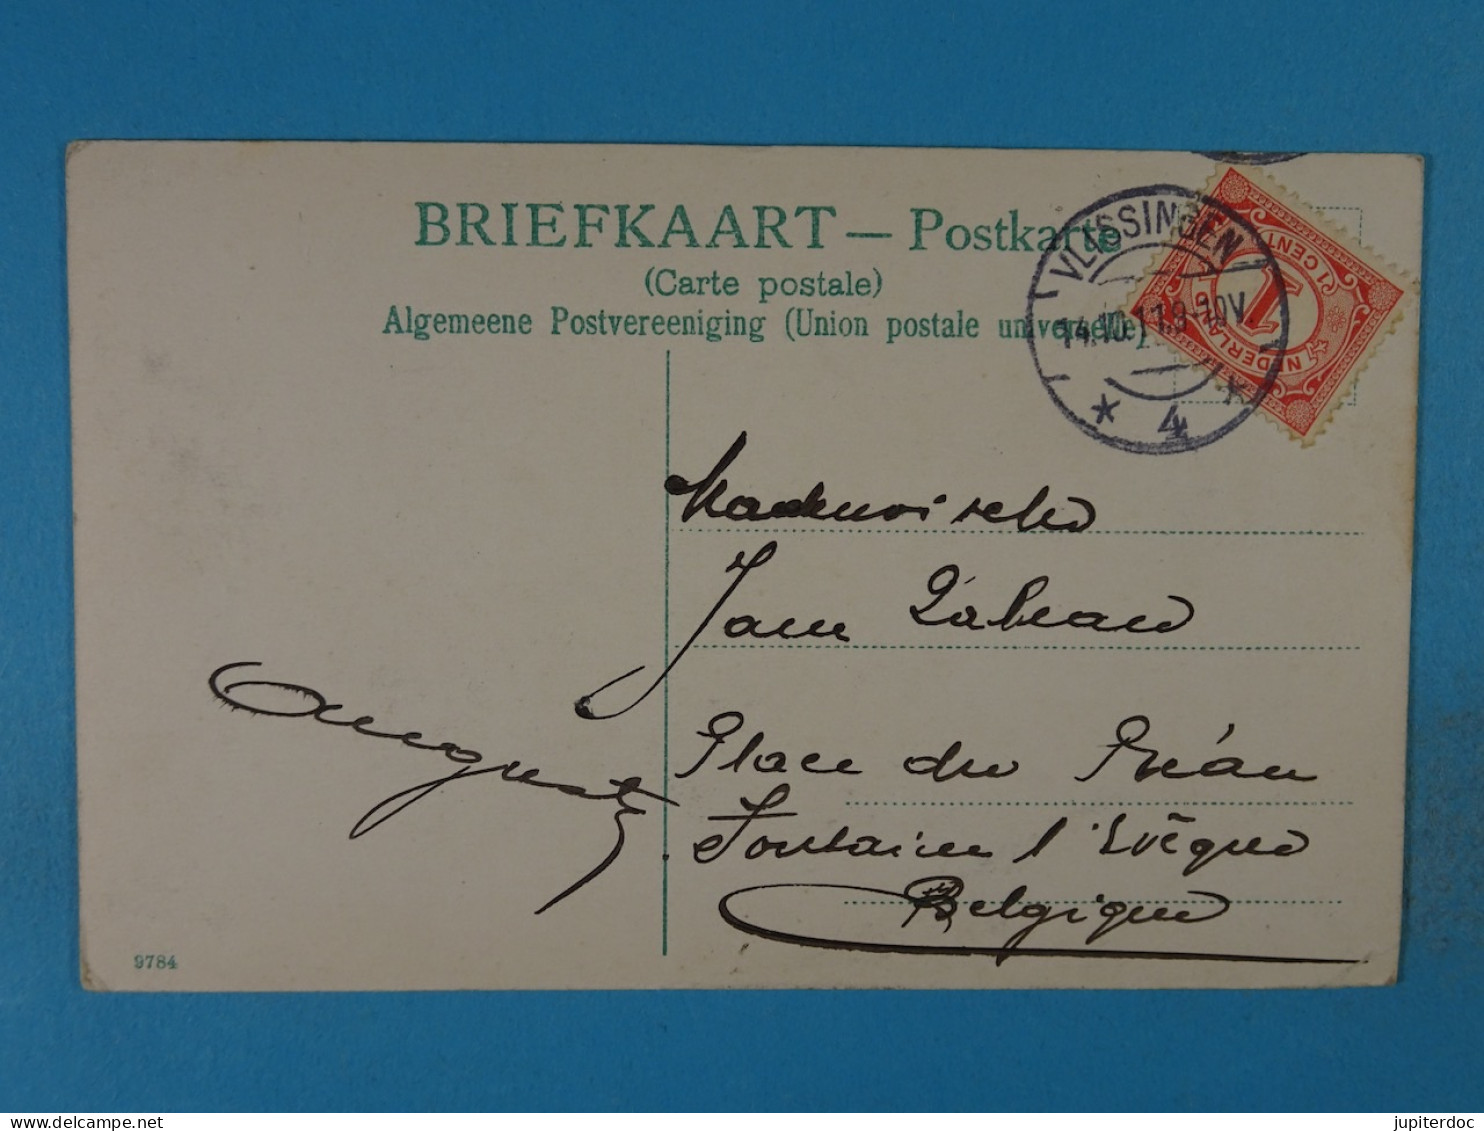 BRIEFKAART — Postkarte
(Carte postale)
Algemeene Postvereeniging (Union postale universelle)
VLISSINGEN
14.10.11.9-10V
* 4 *
1 CENT
1
NEDERL
Mademoiselle
Jane
Place du Préau
Fontaine l'Evêque
Belgique
Auguste
9784
jupiterdoc